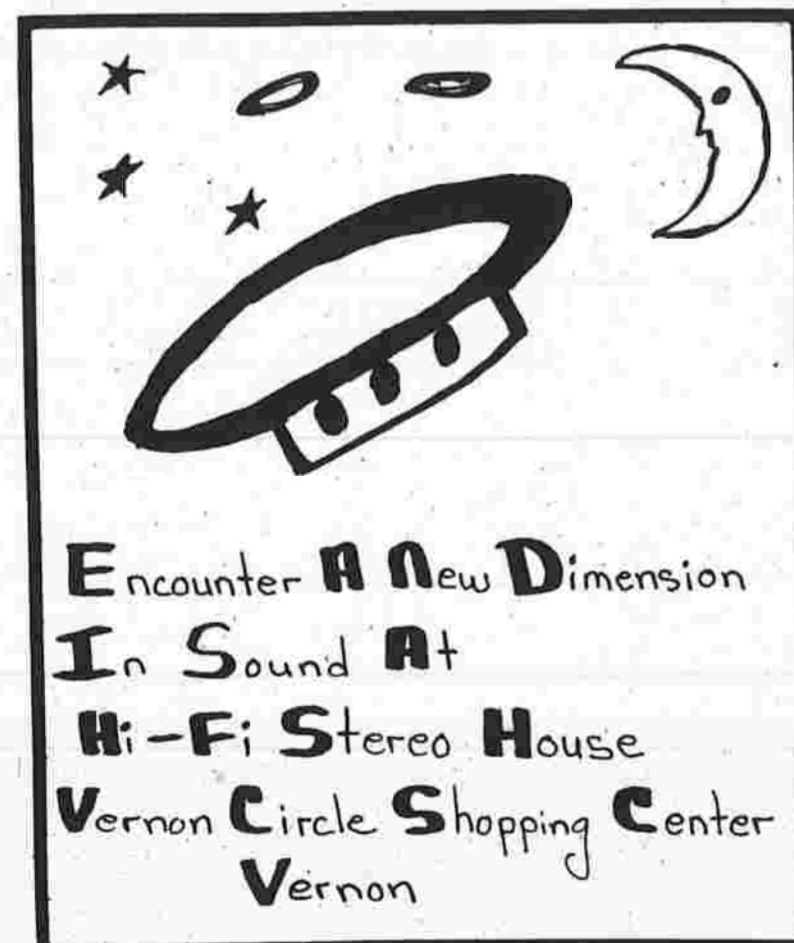 Encounter A New Dimension
In Sound At
Hi-Fi Stereo House
Vernon Circle Shopping Center
Vernon